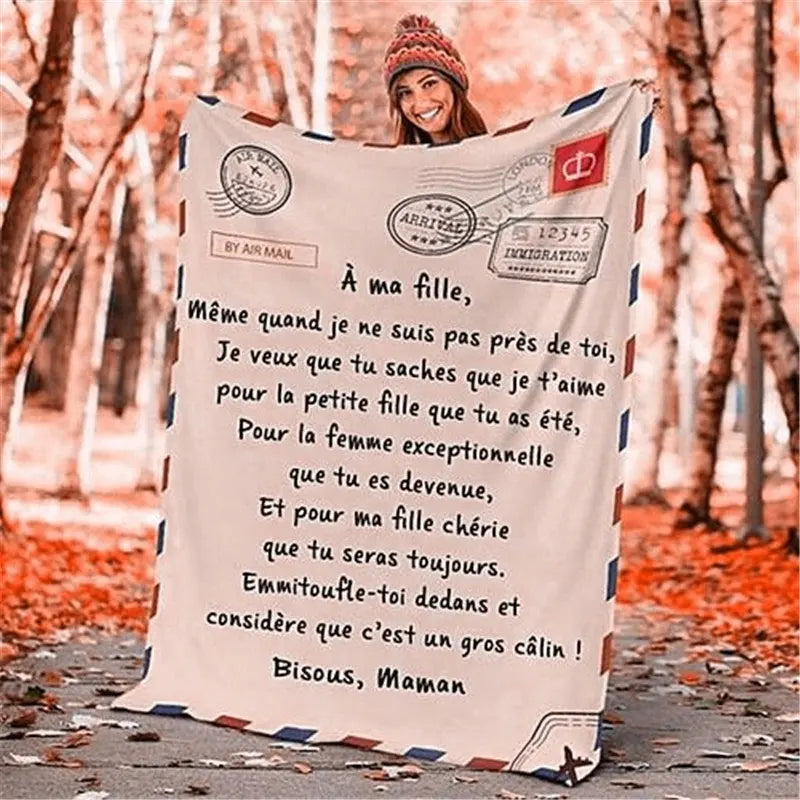 AIR MAIL
LONDON
ARRIVAL
12345
IMMIGRATION
BY AIR MAIL
À ma fille,
Même quand je ne suis pas près de toi,
Je veux que tu saches que je t'aime
pour la petite fille que tu as été,
Pour la femme exceptionnelle
que tu es devenue,
Et pour ma fille chérie
que tu seras toujours.
Emmitoufle-toi dedans et
considère que c'est un gros câlin !
Bisous, Maman